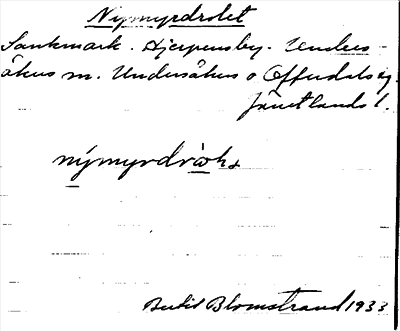 Nymyrdrolet
Sankmark. Hjerpensby. Unders-
åkers sn. Undersåkers o Offerdals tg.
Jämtlands l.
nýmyrdr
Bertil Blomstrand 1933